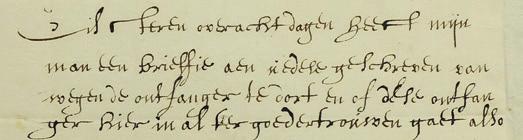 Gisteren overacht dagen heeft mijn
man een brieffie aen uedele geschreven van
wegen de ontfanger te dort en of dese ontfan
ger hier in al ter goedertrouwen gaet also